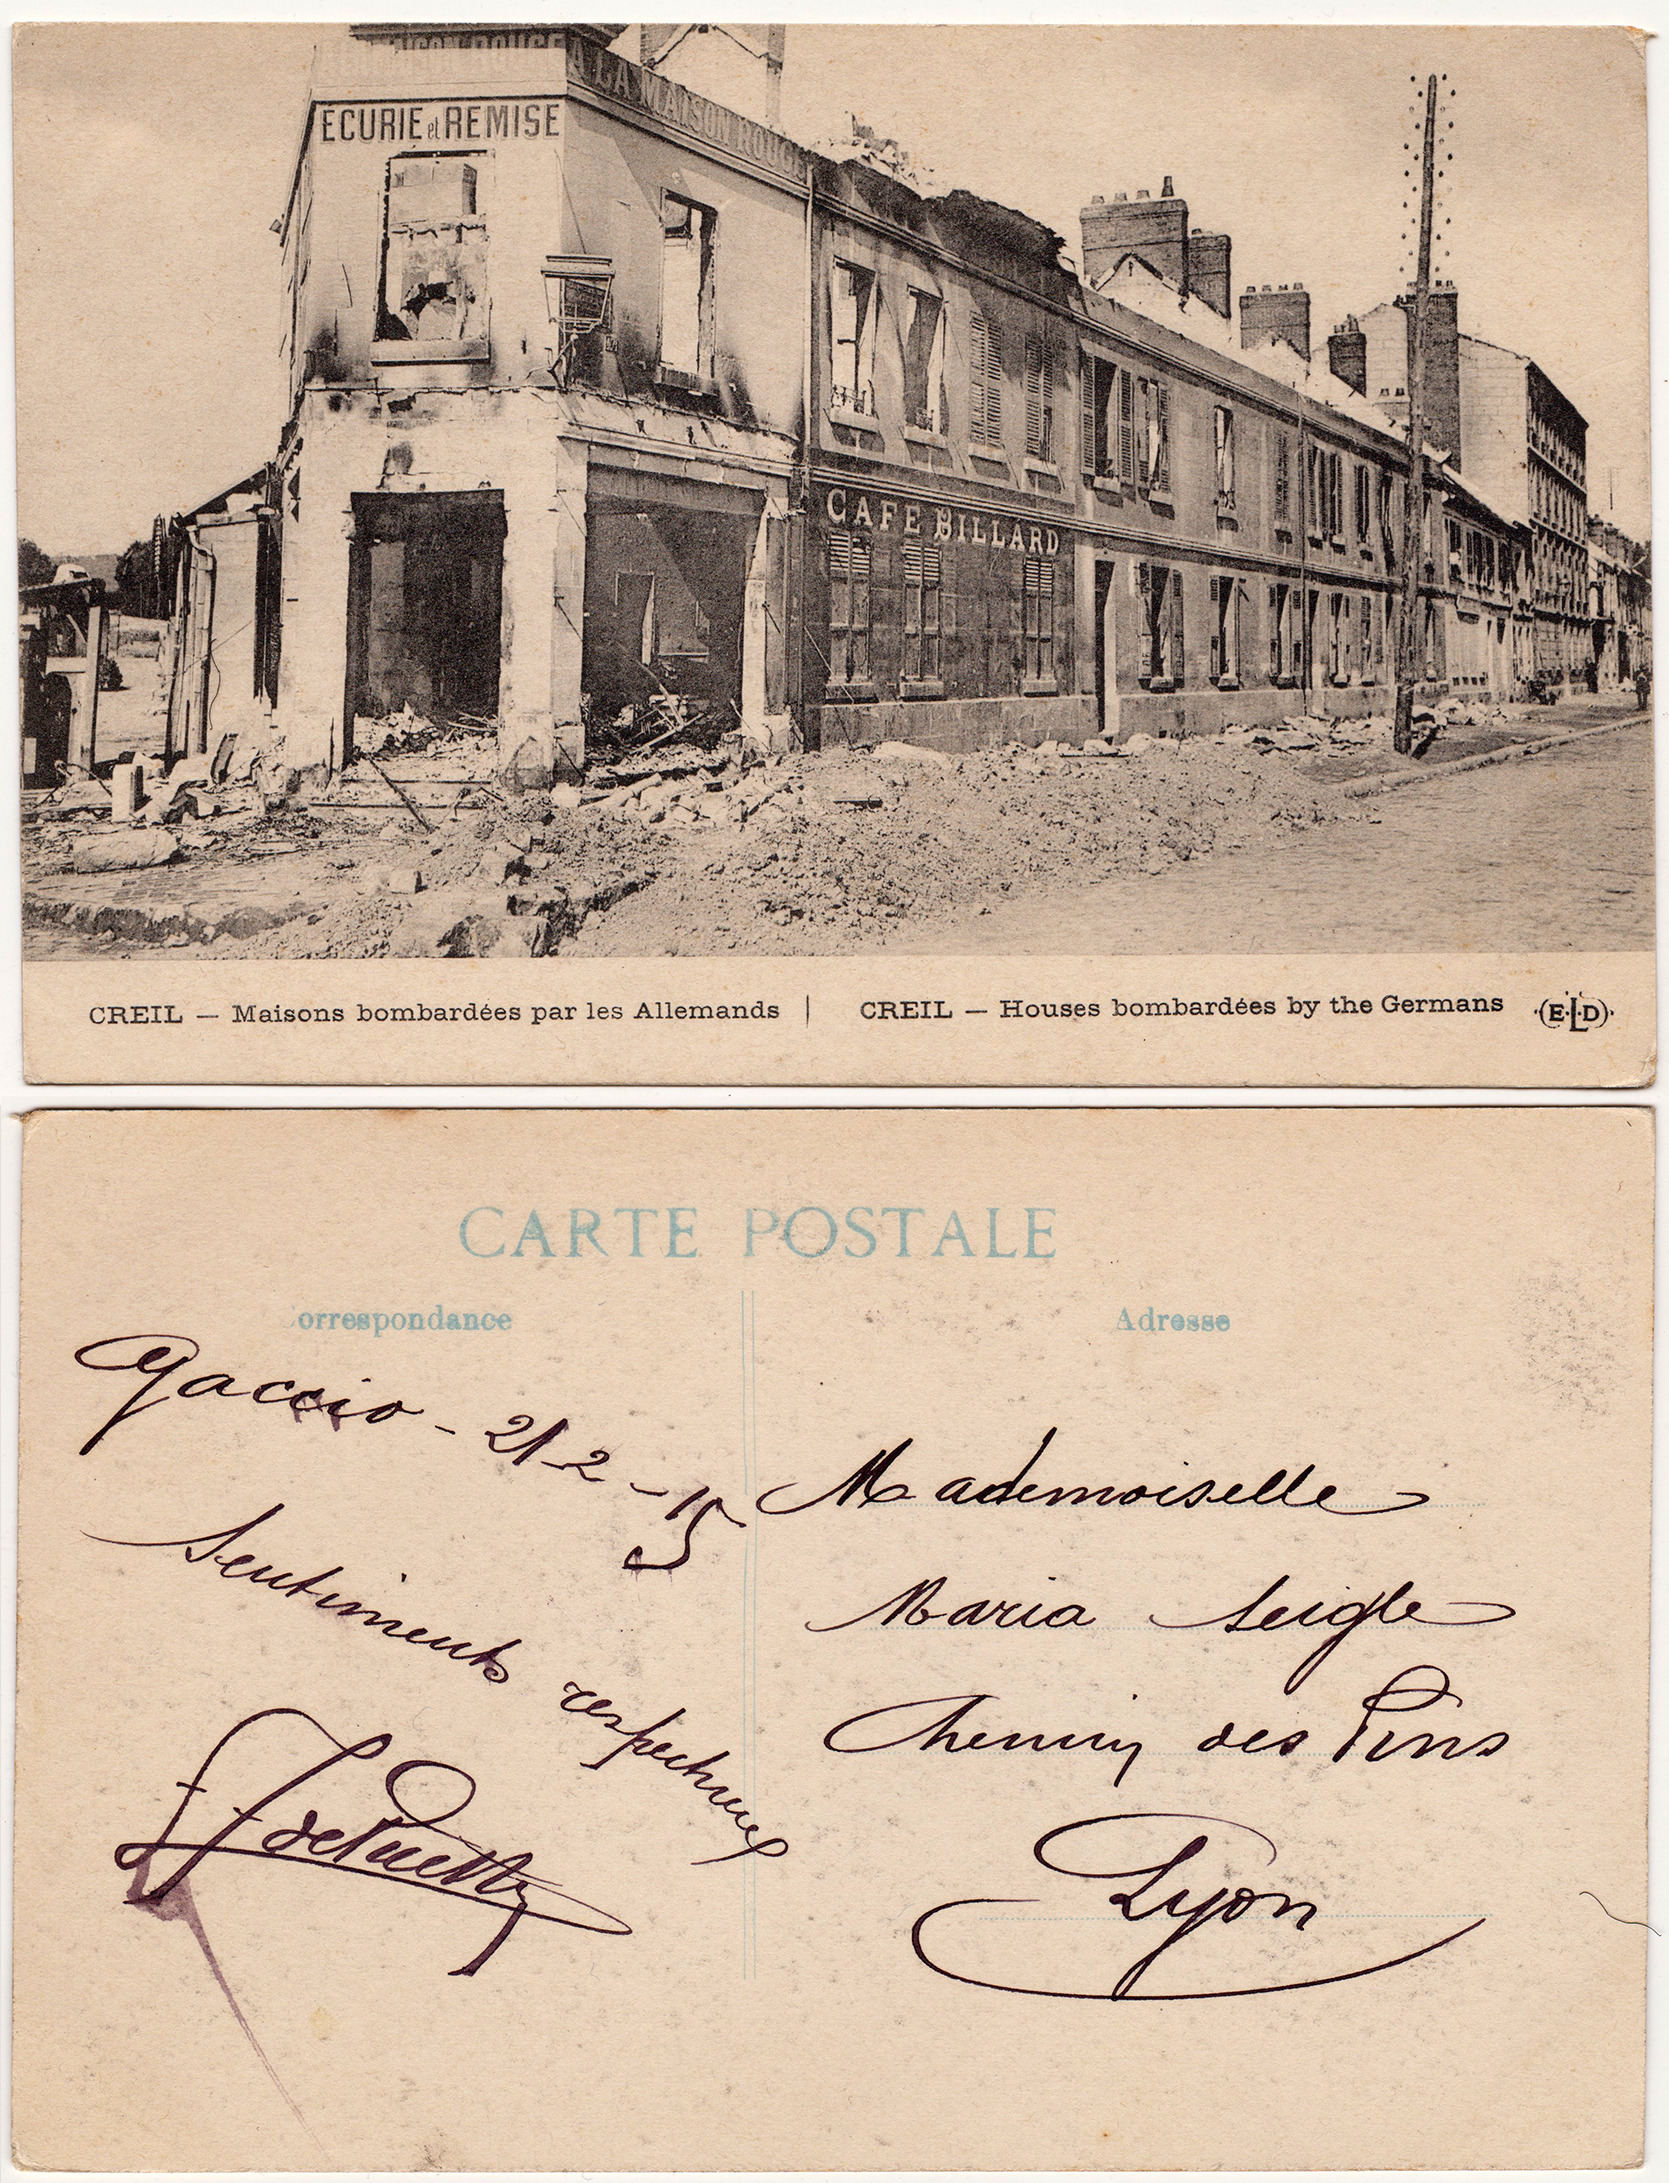 A LA MAISON ROUGE
ECURIE et REMISE
CAFE BILLARD
CREIL — Maisons bombardées par les Allemands | CREIL — Houses bombardées by the Germans (E.L.D)
CARTE POSTALE
orrespondance
Adresse
21-2-15
Sentiments respectueux
Mademoiselle
Maria Seigle
Chemin des Pins
Lyon